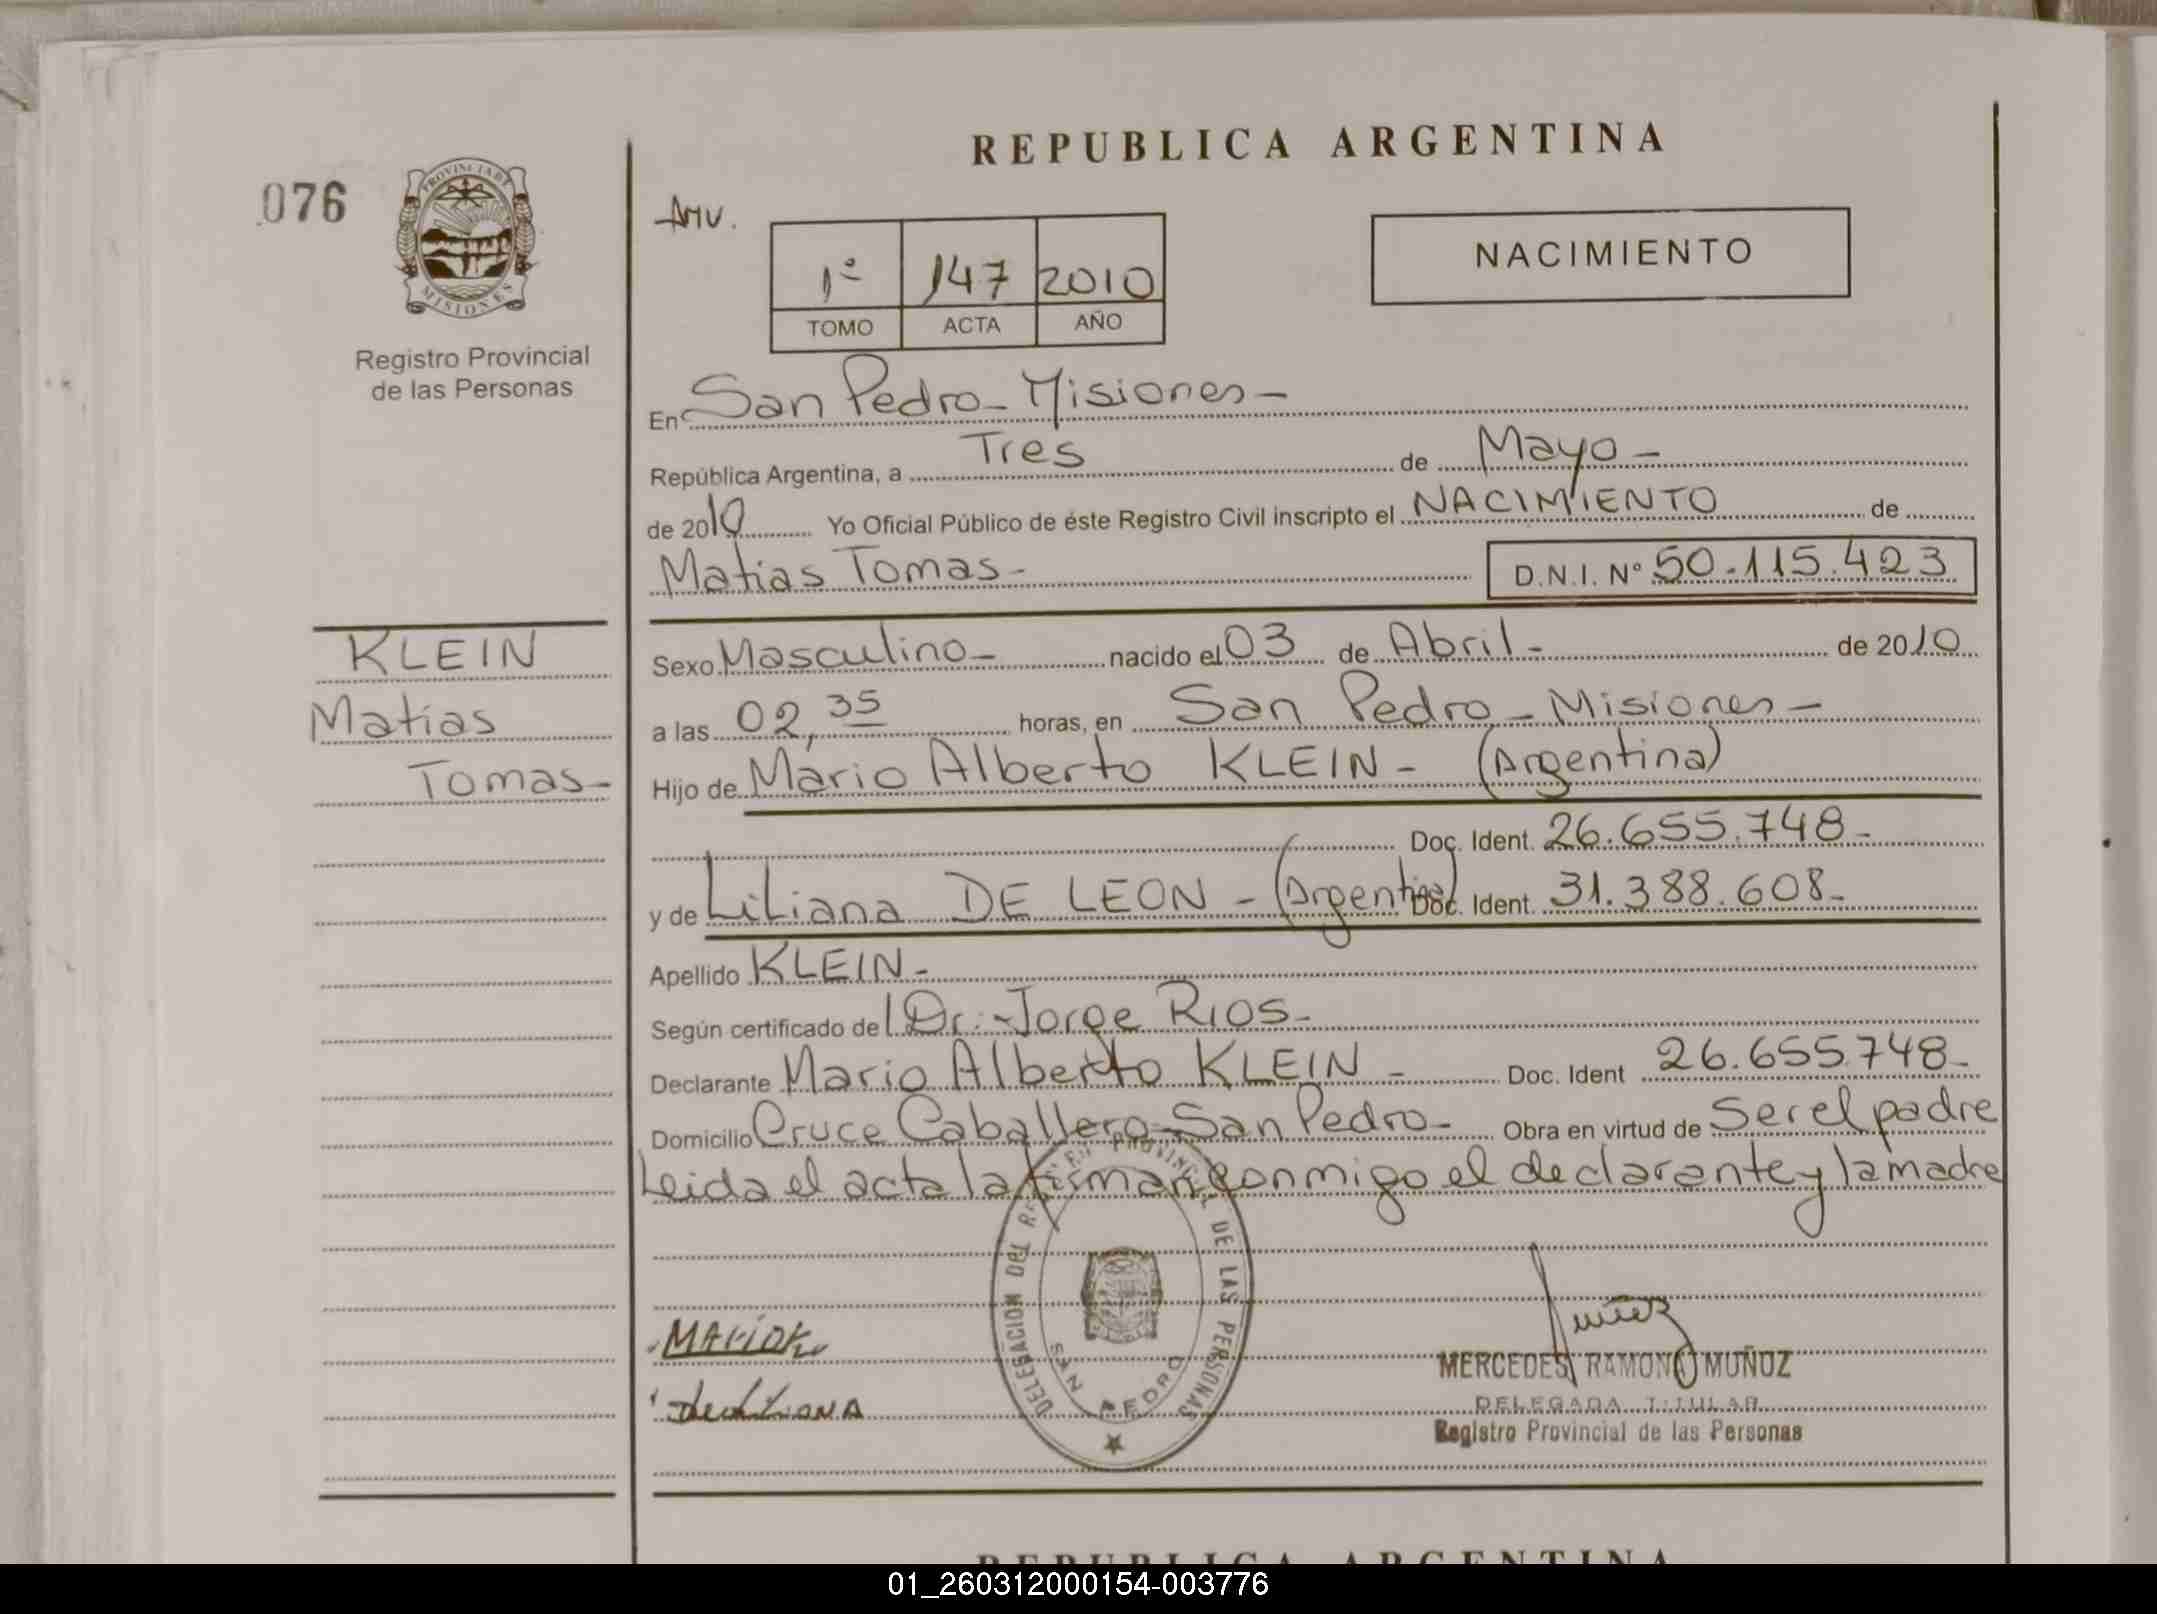 REPUBLICA ARGENTINA
076
PROVINCIA DE MISIONES
Registro Provincial
de las Personas
1º 147 2010
TOMO ACTA AÑO
NACIMIENTO
En San Pedro - Misiones -
República Argentina, a Tres de Mayo -
de 2010 Yo Oficial Público de éste Registro Civil inscripto el NACIMIENTO de
Matias Tomas - D.N.I. Nº 50.115.423
KLEIN
Matias
Tomas -
Sexo Masculino - nacido el 03 de Abril - de 2010
a las 02,35 horas, en San Pedro - Misiones -
Hijo de Mario Alberto KLEIN - (Argentina)
Doc. Ident. 26.655.748 -
y de Liliana DE LEON - (Argentina) Doc. Ident. 31.388.608 -
Apellido KLEIN -
Según certificado del Dr. Jorge RIOS -
Declarante Mario Alberto KLEIN - Doc. Ident 26.655.748 -
Domicilio Cruce Caballero - San Pedro - Obra en virtud de Ser el padre
Leida el acta la firman conmigo el declarante y la madre
DELEGACION DEL REGISTRO PROVINCIAL DE LAS PERSONAS
SAN PEDRO
MERCEDES RAMONA MUÑOZ
DELEGADA TITULAR
Registro Provincial de las Personas
REPUBLICA ARGENTINA
01_260312000154-003776